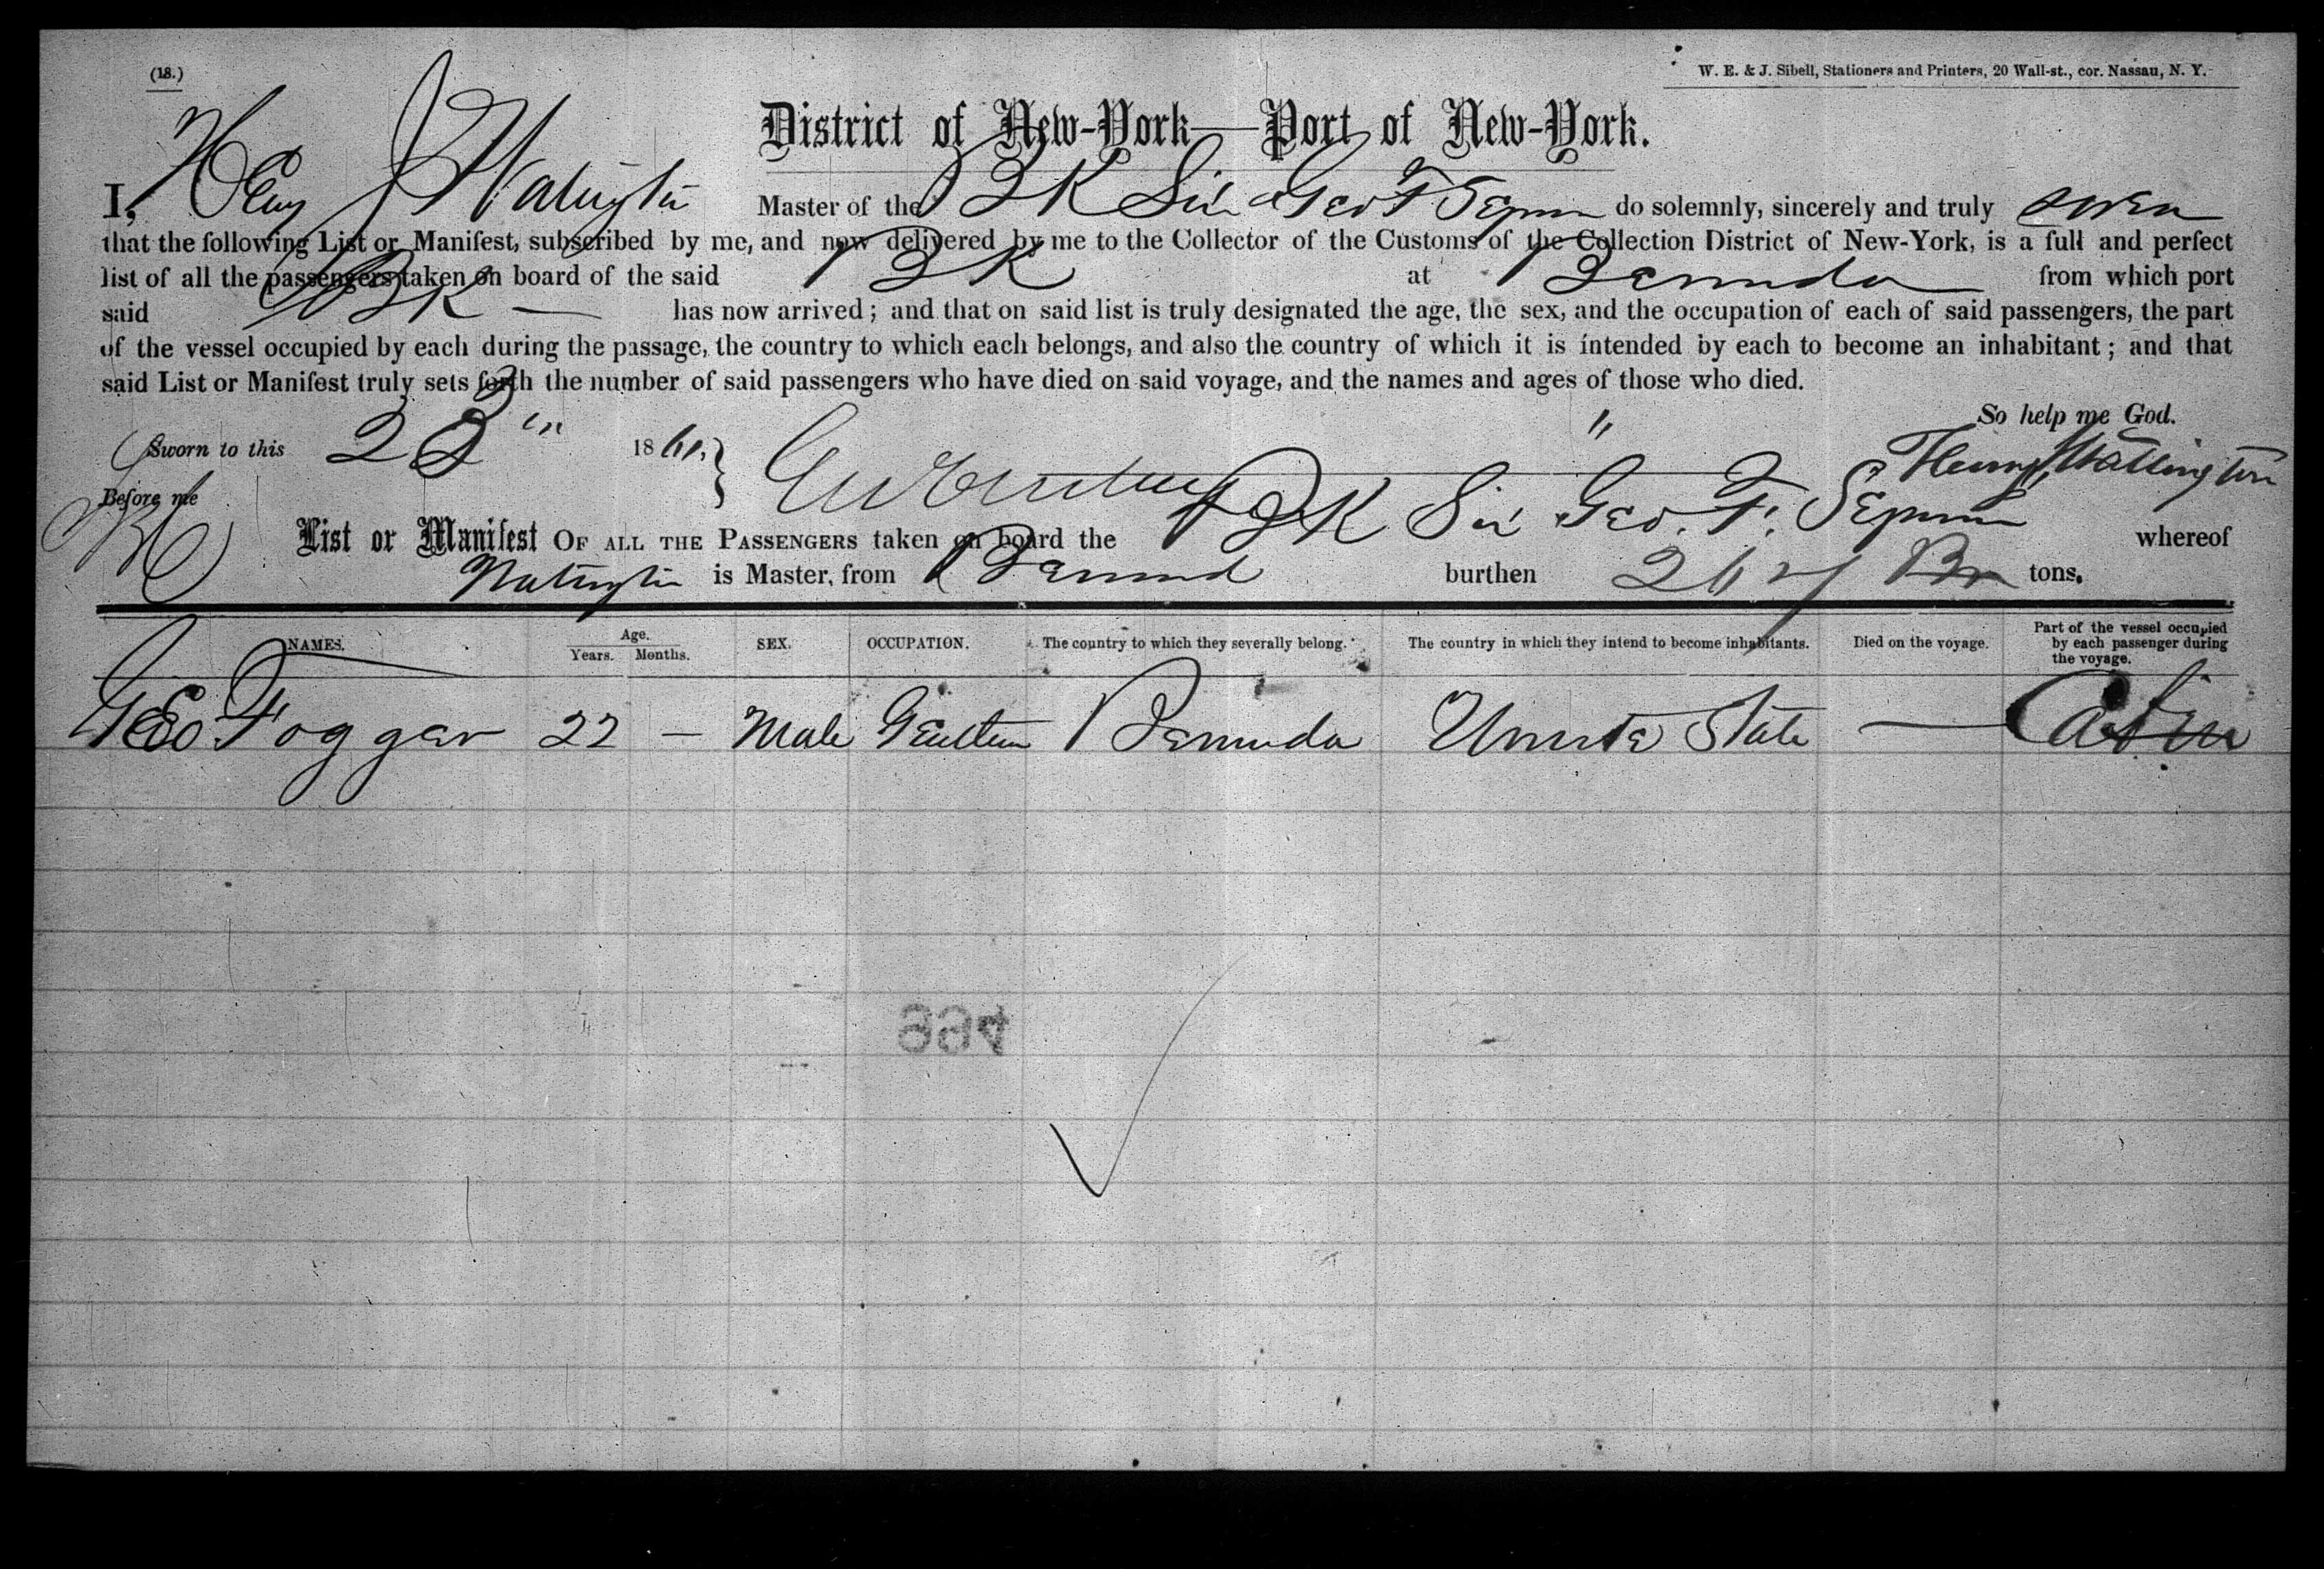 (18.)
W. E. & J. Sibell, Stationers and Printers, 20 Wall-st., cor. Nassau, N. Y.
District of New-York—Port of New-York.
I, Master of the BK Sir Geo F Seymour do solemnly, sincerely and truly swear
that the following List or Manifest, subscribed by me, and now delivered by me to the Collector of the Customs of the Collection District of New-York, is a full and perfect
list of all the passengers taken on board of the said BK at Bermuda from which port
said BK — has now arrived; and that on said list is truly designated the age, the sex, and the occupation of each of said passengers, the part
of the vessel occupied by each during the passage, the country to which each belongs, and also the country of which it is intended by each to become an inhabitant; and that
said List or Manifest truly sets forth the number of said passengers who have died on said voyage, and the names and ages of those who died.
So help me God.
Sworn to this 186
Henry Watlington
Before me
List or Manifest OF ALL THE PASSENGERS taken on board the BK Sir Geo. F. Seymour whereof
Watlington is Master, from Bermud burthen tons.
NAMES. Age. Years. Months. SEX. OCCUPATION. The country to which they severally belong. The country in which they intend to become inhabitants. Died on the voyage. Part of the vessel occupied by each passenger during the voyage.
Geo Foggar 22 — Male Bermuda State — Cabin